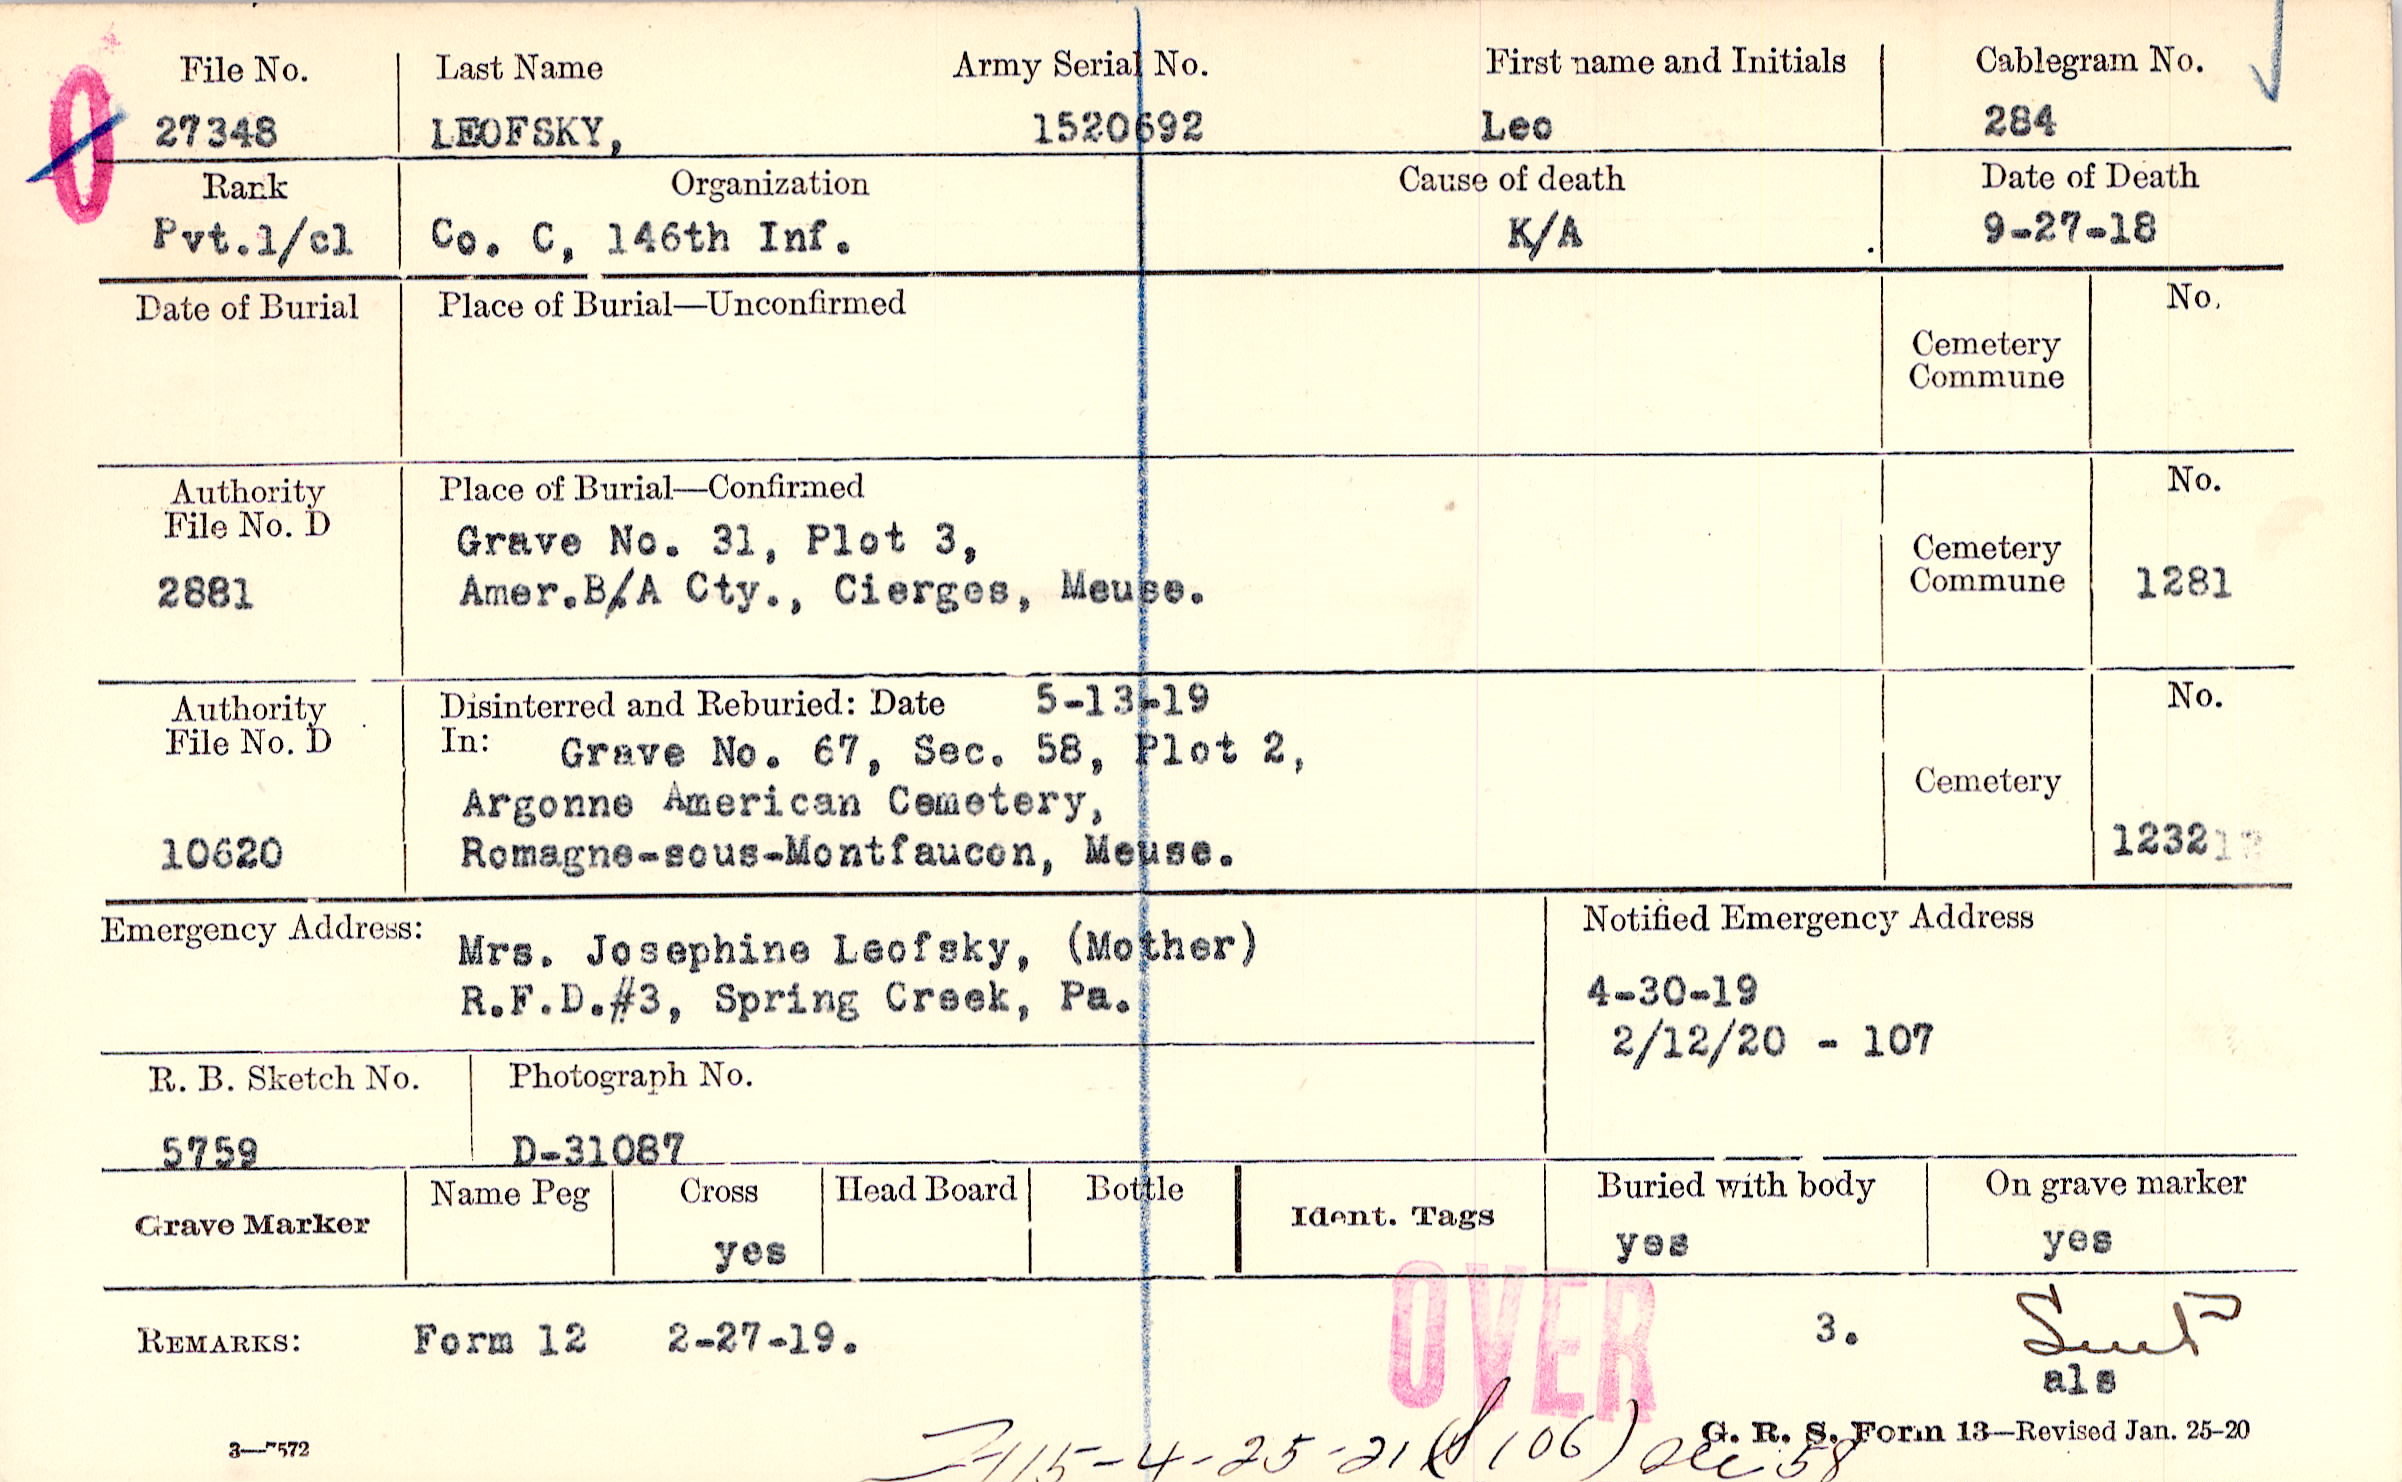 File No. Last Name Army Serial No. First name and Initials Cablegram No.
0 27348 LEOFSKY, 1520692 Leo 284
Rank Organization Cause of death Date of Death
Pvt.1/cl Co. C, 146th Inf. K/A 9-27-18
Date of Burial Place of Burial—Unconfirmed No.
Cemetery
Commune
Authority Place of Burial—Confirmed No.
File No. D
Grave No. 31, Plot 3,
Cemetery
2881 Amer.B/A Cty., Cierges, Meuse. Commune 1281
Authority Disinterred and Reburied: Date 5-13-19 No.
File No. D In: Grave No. 67, Sec. 58, Plot 2,
Argonne American Cemetery, Cemetery
10620 Romagne-sous-Montfaucon, Meuse. 1232
Emergency Address: Notified Emergency Address
Mrs. Josephine Leofsky, (Mother)
R.F.D.#3, Spring Creek, Pa. 4-30-19
2/12/20 - 107
R. B. Sketch No. Photograph No.
5759 D-31087
Grave Marker Name Peg Cross Head Board Bottle Ident. Tags Buried with body On grave marker
yes yes yes
OVER
REMARKS: Form 12 2-27-19. 3.
als
3—7572 G. R. S. Form 13—Revised Jan. 25-20
115-4-25-21 ( 106) 58